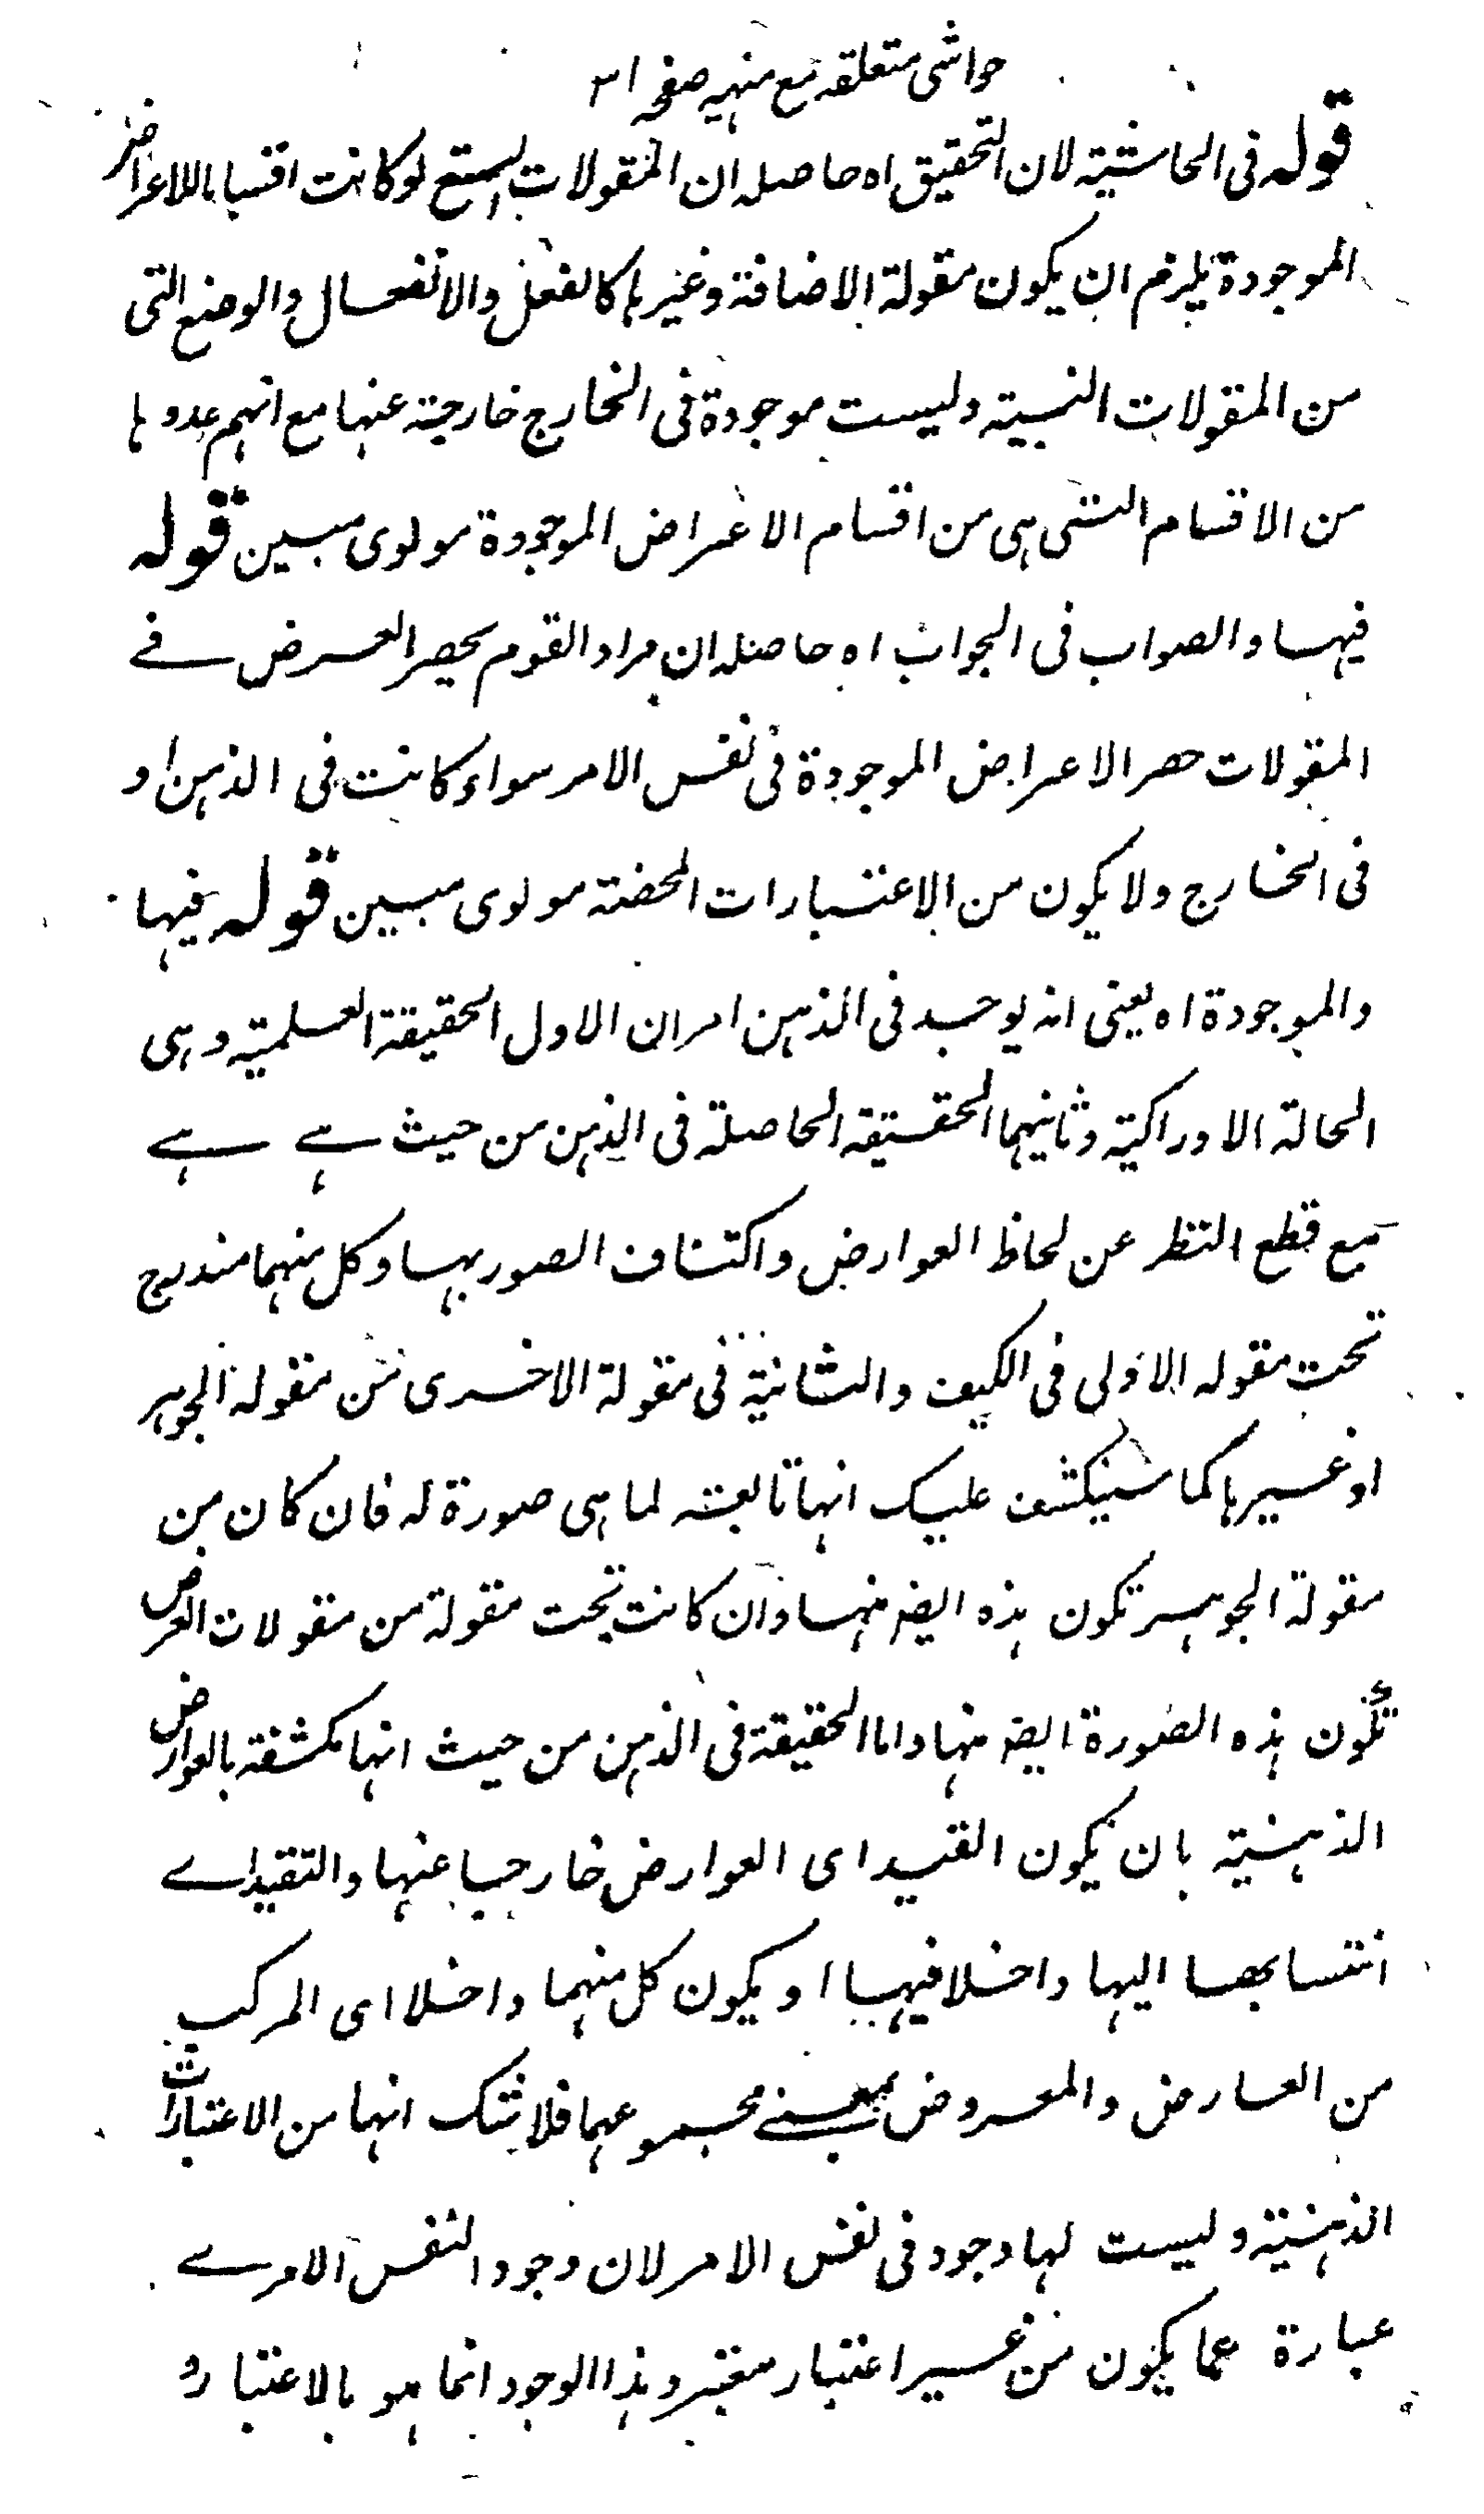 حواشی متعلقہ مع منہیہ صفحہ ۳۱
قوله فی الحاشیة لان التحقیق اه حاصله ان المقولات التسع لو کانت اقساما للاعراض
الموجودة یلزم ان یکون مقولة الاضافة وغیرها کالفعل والانفعال والوضع التی
من المقولات النسبیة ولیست موجودة فی الخارج خارجة عنها مع انهم عدوها
من الاقسام التی هی من اقسام الاعراض الموجودة مولوی مبین قوله
فیها والصواب فی الجواب اه حاصله ان مراد القوم بحصر العرض فے
المقولات حصر الاعراض الموجودة فی نفس الامر سواء کانت فی الذهن او
فی الخارج ولا یکون من الاعتبارات المحضة مولوی مبین قوله فیها
والموجودة اه یعنی انه یوجد فی الذهن امران الاول الحقیقة العلمیة وهی
الحالة الادراکیة وثانیهما الحقیقة الحاصلة فی الذهن من حیث هے هے
مع قطع النظر عن لحاظ العوارض واکتناف الصور بها وکل منهما مندرج
تحت مقوله الاولی فی الکیف والثانیة فی مقولة الاخری من مقولة الجوهر
او غیرها کما سینکشف علیک انها تابعة لما هی صورة له فان کان من
مقولة الجوهر تکون هذه ایضا منها وان کانت تحت مقولة من مقولات العرض
تکون هذه الصورة ایضا منها واما الحقیقة فی الذهن من حیث انها مکتنفة بالعوارض
الذهنیة بان یکون القید ای العوارض خارجا عنها والتقید اے
انتسابها الیها داخلا فیها او یکون کل منهما داخلا ای المرکب
من العارض والمعروض بمعنے مجموعهما فلا شک انها من الاعتبارات
الذهنیة ولیست لها وجود فی نفس الامر لان وجود النفس الامرے
عبارة عما یکون من غیر اعتبار معتبر وهذا الوجود انما هو بالاعتبار و